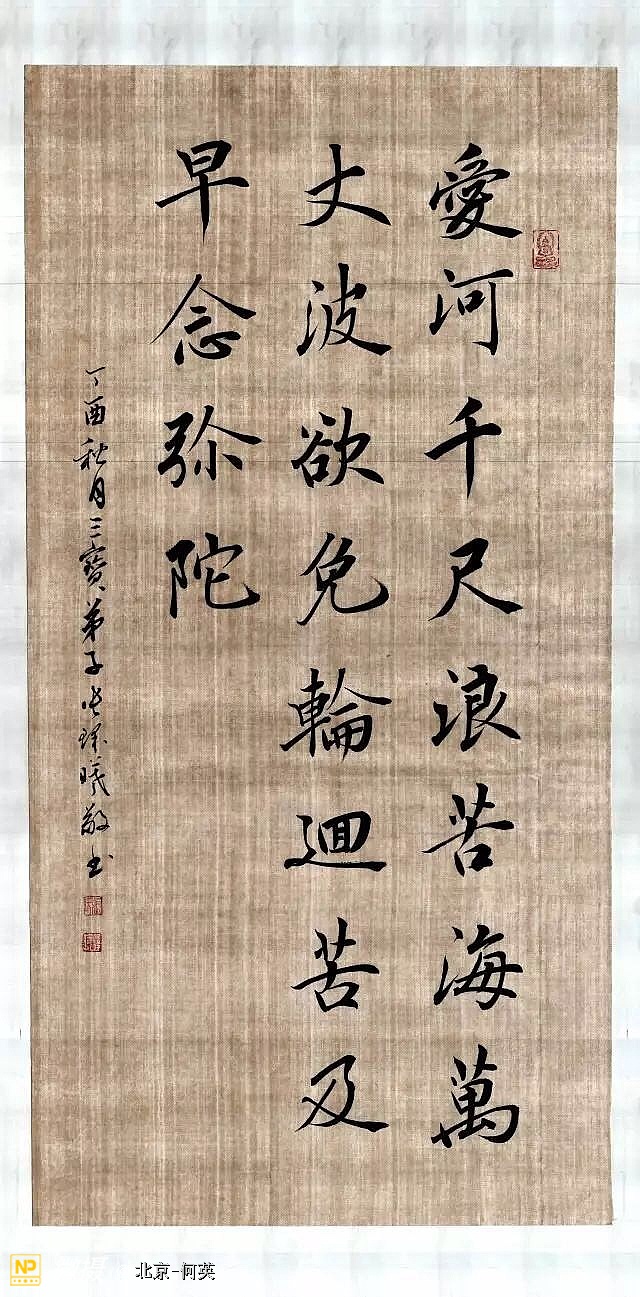 愛河千尺浪苦海萬
丈波欲免輪迴苦及
早念弥陀
丁酉秋月三寶弟子张瑞曦敬书
NP
北京-何英